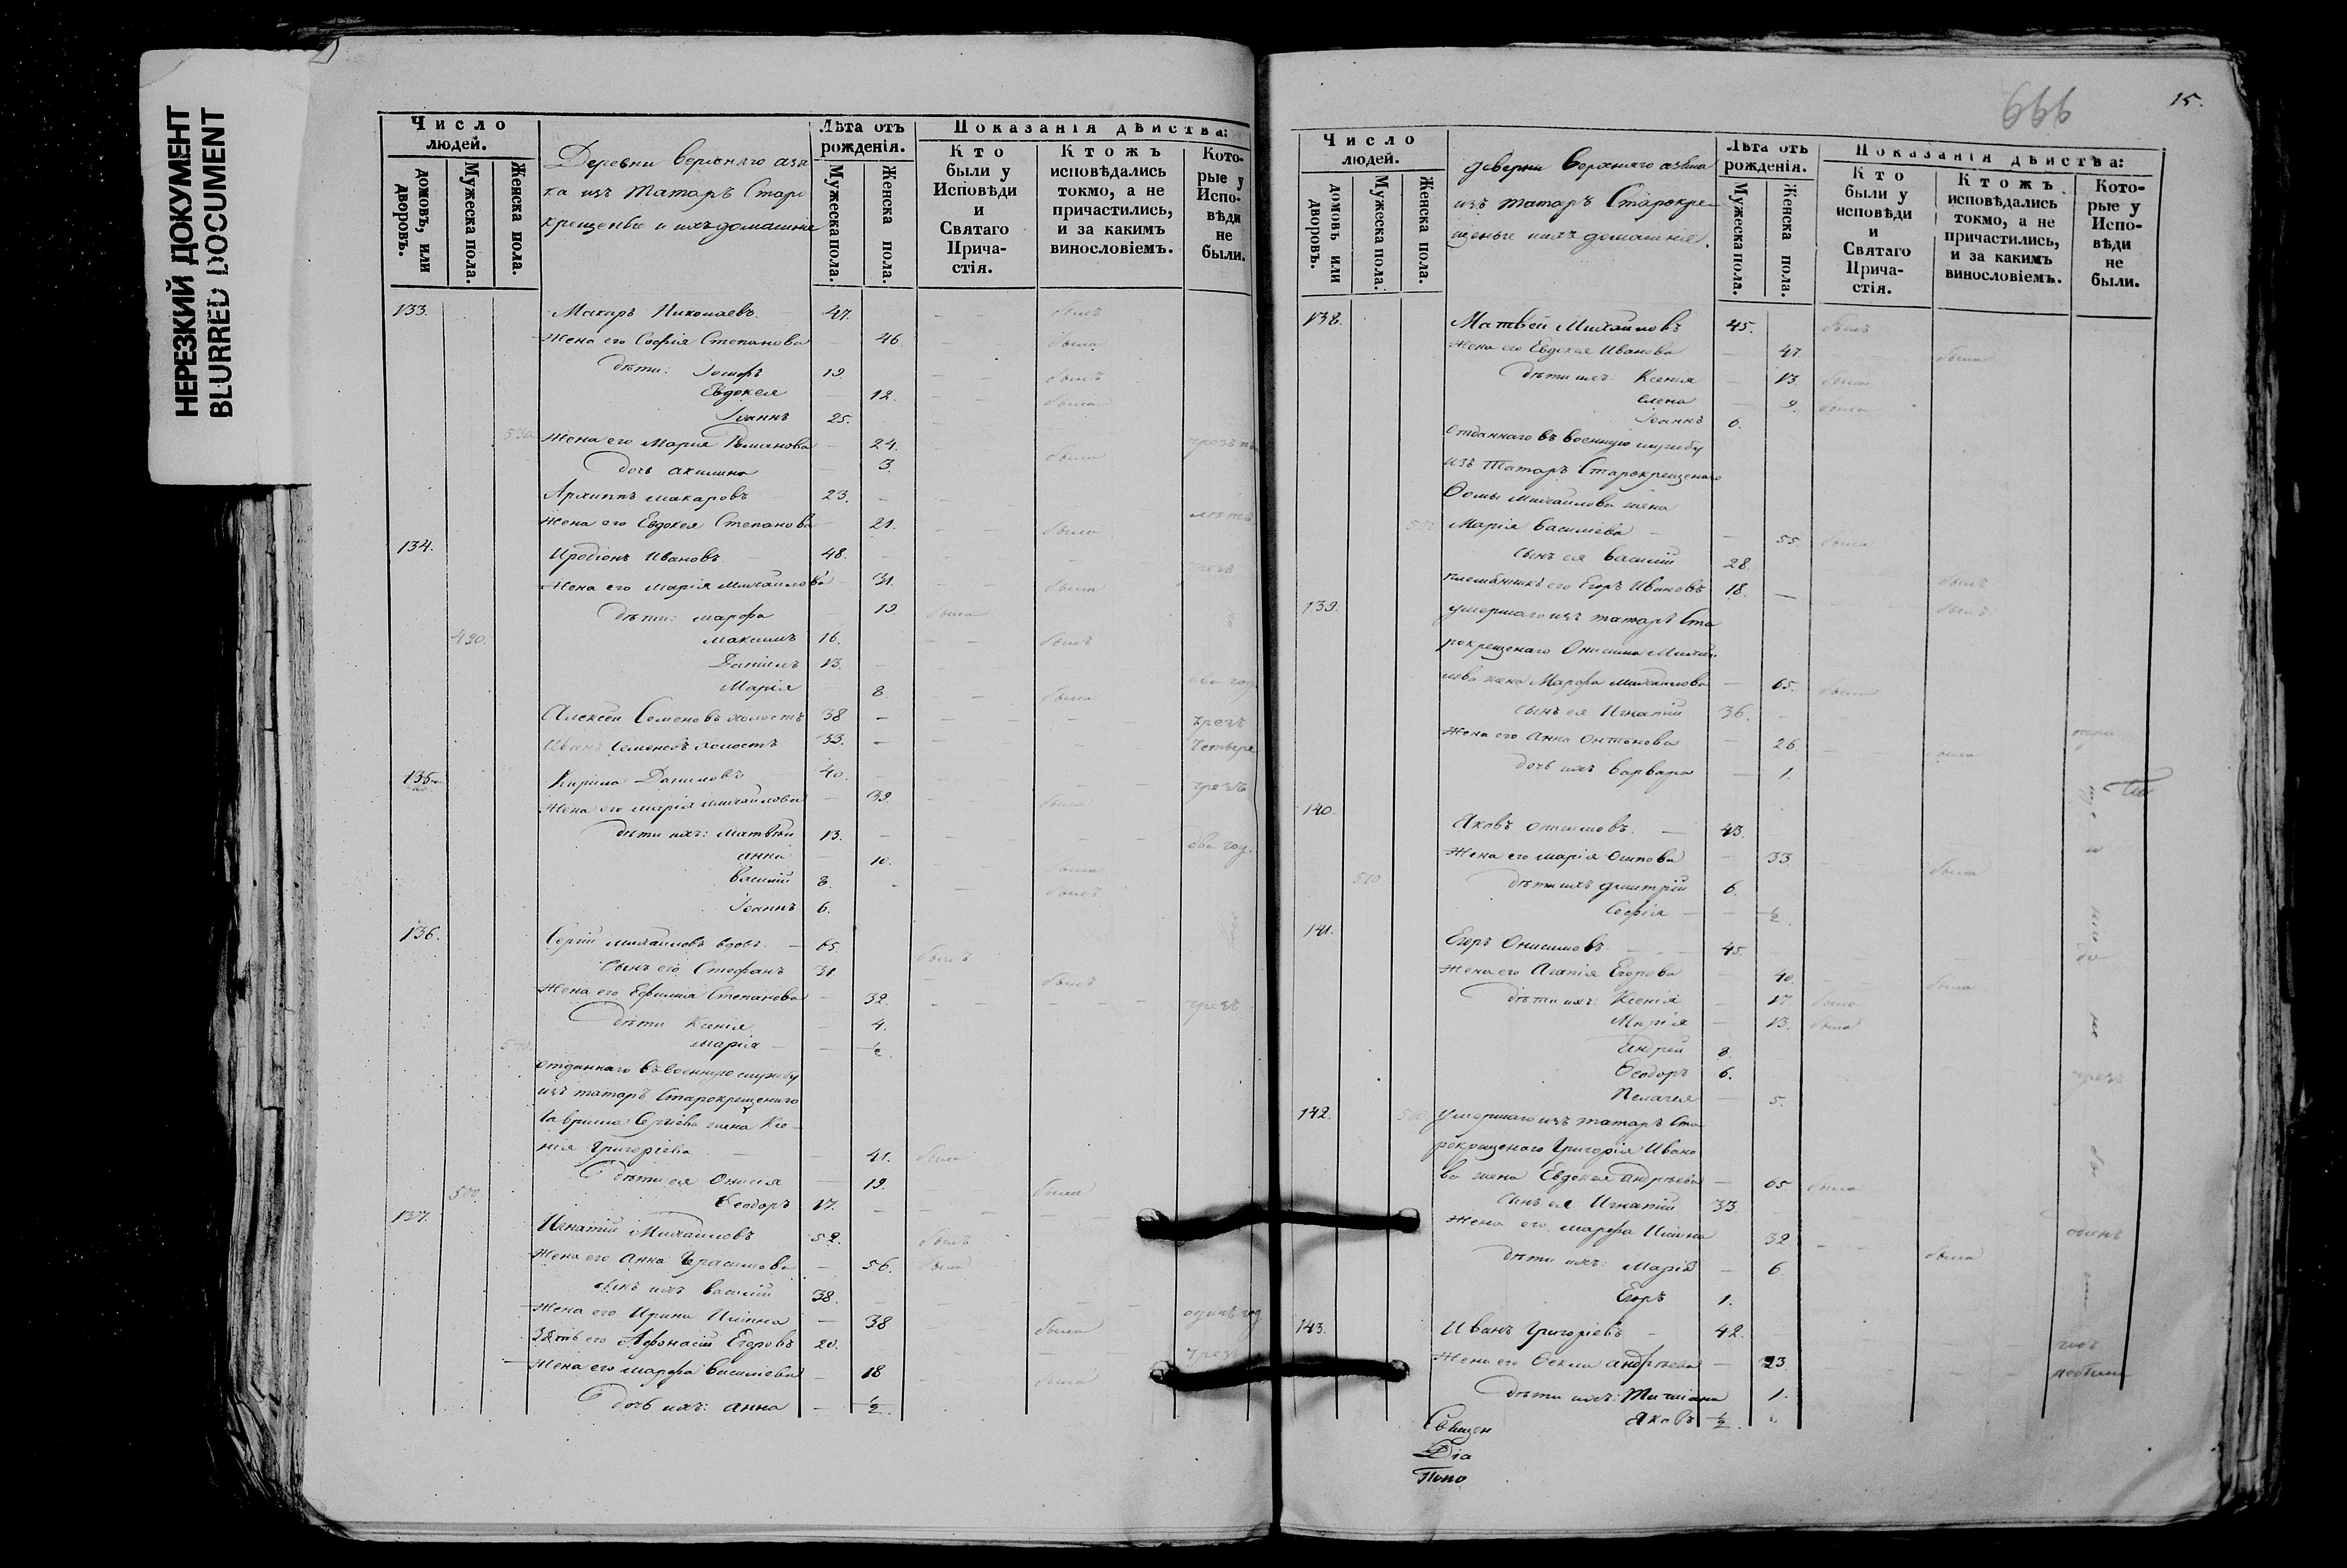 НЕРЕЗКИЙ ДОКУМЕНТ
BLURRED DOCUMENT
Число людей.
домовъ, или дворовъ.
Мужеска пола.
Женска пола.
Деревни Верхняго Азя
ка изъ татаръ Старо
крещеные и ихъ домашніе
Лѣта отъ рожденія.
Мужеска пола.
Женска пола.
Показанія дѣйства:
Кто были у Исповѣди и Святаго Прича-стія.
Ктожъ исповѣдались токмо, а не причастились, и за какимъ винословіемъ.
Кото-рые у Испо-вѣди не были.
133. Макаръ Николаевъ 47. былъ
Жена его Софія Степанова 46 была
дѣти: Іосифъ 19. былъ
Евдокея 12. была
Іоаннъ 25.
530 Жена его Марія Романова 24. была
дочь Акилина 3
Архиппъ Макаровъ 23.
Жена его Евдокея Степанова 21. была
134. Иродіонъ Ивановъ 48.
Жена его Марія Михаилова 31. была
дѣти: Марфа 19 была
490. Максимъ 16. былъ
Даніилъ 13.
Марія 8. была
Алексѣй Семеновъ холостъ 38 чрезъ
Иванъ Семеновъ холостъ 33. четыре
135. Кирила Даниловъ 40. чрезъ
Жена его Марія Михаилова 39. была
дѣти ихъ: Матвѣй 13. два год.
Анна 10. была
Василій 8. былъ
Іоаннъ 6.
136. Сергій Михаиловъ вдовъ 65 былъ
Сынъ его Стефанъ 31. былъ
Жена его Ефимія Степанова 32. чрезъ
Дѣти Ксенія 4.
Марія ½
отданнаго въ военную службу
изъ татаръ Старокрещенаго
Гаврила Сергіева жена Ксе-
нія Григоріева 41. была
Дѣти ея Онисія 19. была
500. Ѳеодоръ 17.
137. Игнатій Михаиловъ 52. былъ
Жена его Анна Герасимова 56. была
сынъ ихъ Василій 38.
Жена его Ирина Ильина 38 была одинъ год
Зять его Афонасій Егоровъ 20. чрезъ
Жена его Марфа Васильева 18 была
дочь ихъ: Анна ½
666
15.
Число людей.
домовъ или дворовъ.
Мужеска пола.
Женска пола.
деревни Верхняго Азяка
изъ татаръ Старокре
щеные и ихъ домашніе.
Лѣта отъ рожденія.
Мужеска пола.
Женска пола.
Показанія дѣйства:
Кто были у исповѣди и Святаго Прича-стія.
Ктожъ исповѣдались токмо, а не причастились, и за какимъ винословіемъ.
Кото-рые у Испо-вѣди не были.
138. Матвѣй Михаиловъ 45. былъ
Жена его Евдокея Иванова 47 была
дѣти ихъ: Ксенія 13. была
Елена 9. была
Іоаннъ 6.
Отданнаго въ военную службу
изъ татаръ Старокрещенаго
Ѳомы Михаилова жена
Марія Василіева 55. была
сынъ ея Василій 28.
племянникъ его Егоръ Ивановъ 18. былъ
139. умершаго изъ татаръ Ста
рокрещенаго Онисима Михаи
лова жена Марфа Михаилова 65. была
сынъ ея Игнатій 36.
Жена его Анна Онтонова 26 была
дочь ихъ Варвара 1.
140. Яковъ Онисимовъ 43.
Жена его Марія Осипова 33 была
510 дѣти ихъ Димитрій 6.
Софія ½
141. Егоръ Онисимовъ 45.
Жена его Агапія Егорова 40. была
дѣти ихъ: Ксенія 17. была
Марія 13. была
Андрей 8
Ѳеодоръ 6.
Пелагея 5.
142. умершаго изъ татаръ Ста
рокрещенаго Григорія Ивано
ва жена Евдокея Андреева 65 была
сынъ ея Игнатій 33.
Жена его Марфа Ильина 32 была
дѣти ихъ: Марія 6
Егоръ 1.
143. Иванъ Григоріевъ 42.
Жена его Ѳекла Андреева 23.
дѣти ихъ: Татіана 1.
Яковъ ½
Священ
Діа
Поно